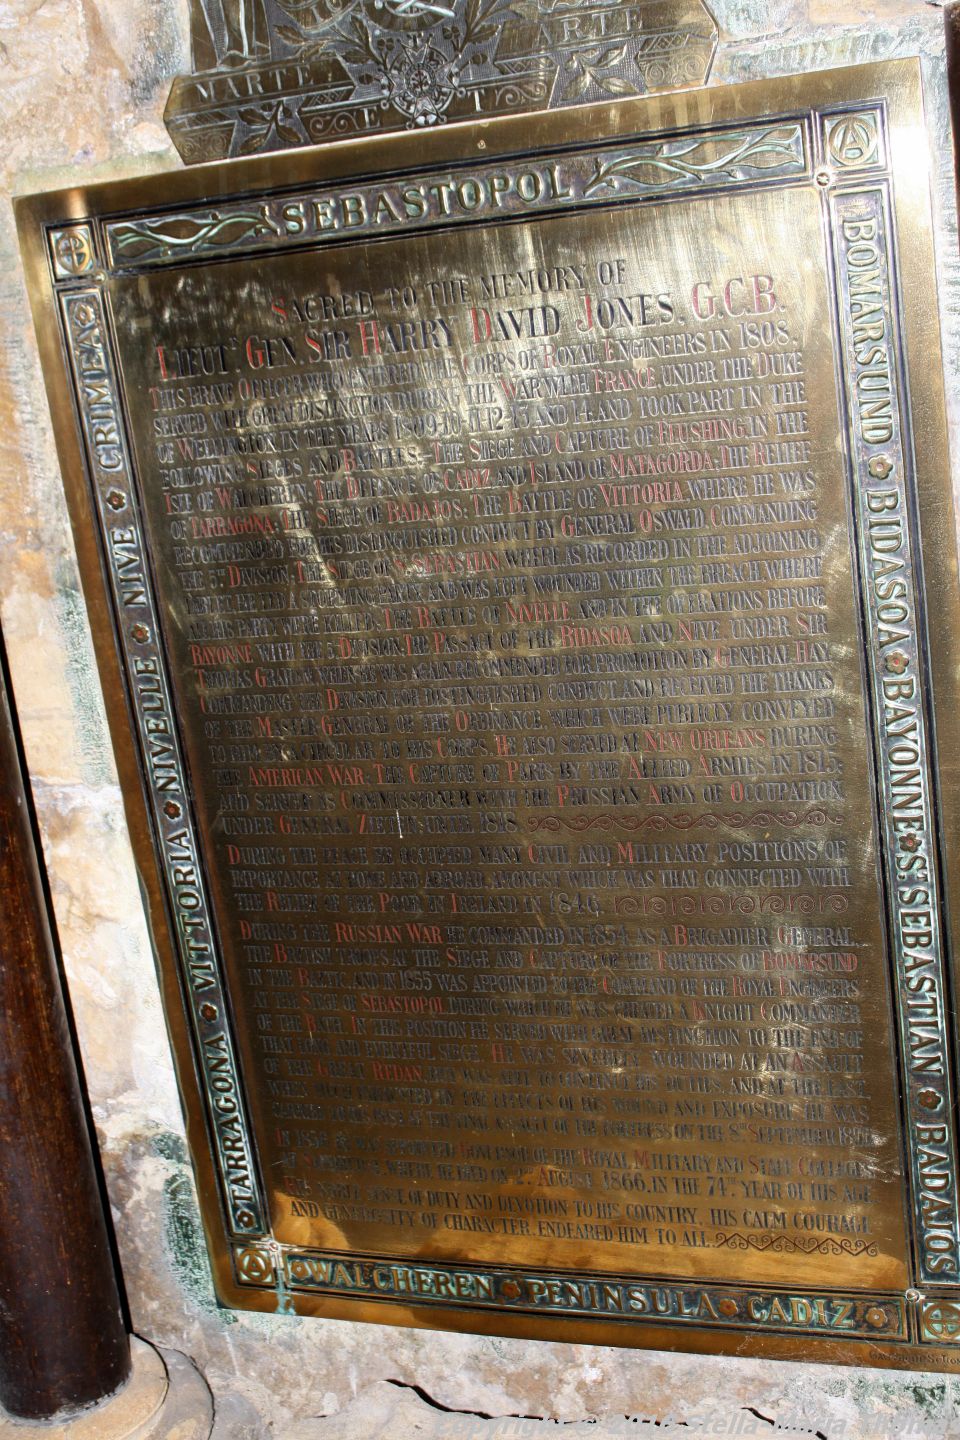 MARTE ET ARTE
SEBASTOPOL
SACRED TO THE MEMORY OF
LIEUT. GEN. SIR HARRY DAVID JONES, G.C.B.
THIS BRAVE OFFICER WHO ENTERED THE CORPS OF ROYAL ENGINEERS IN 1808.
SERVED WITH GREAT DISTINCTION DURING THE WAR WITH FRANCE, UNDER THE DUKE
OF WELLINGTON, IN THE YEARS 1809-10-11-12-13 AND 14. AND TOOK PART IN THE
FOLLOWING SIEGES AND BATTLES. THE SIEGE AND CAPTURE OF FLUSHING, IN THE
ISLE OF WALCHEREN; THE DEFENCE OF CADIZ, AND ISLAND OF MATAGORDA; THE RELIEF
OF TARRAGONA; THE SIEGE OF BADAJOS; THE BATTLE OF VITTORIA, WHERE HE WAS
RECOMMENDED FOR HIS DISTINGUISHED CONDUCT BY GENERAL OSWALD, COMMANDING
THE 5TH DIVISION; THE SIEGE OF S. SEBASTIAN WHERE AS RECORDED IN THE ADJOINING
TABLET, HE LED A STORMING PARTY, AND WAS LEFT WOUNDED WITHIN THE BREACH, WHERE
ALL HIS PARTY WERE KILLED; THE BATTLE OF NIVELLE, AND IN THE OPERATIONS BEFORE
BAYONNE WITH THE 5. DIVISION; THE PASSAGE OF THE BIDASOA, AND NIVE, UNDER SIR
THOMAS GRAHAM, WHEN HE WAS AGAIN RECOMMENDED FOR PROMOTION BY GENERAL HAY,
COMMANDING THE DIVISION, FOR DISTINGUISHED CONDUCT AND RECEIVED THE THANKS
OF THE MASTER GENERAL OF THE ORDNANCE, WHICH WERE PUBLICLY CONVEYED
TO HIM BY A CIRCULAR TO HIS CORPS. HE ALSO SERVED AT NEW ORLEANS DURING
THE AMERICAN WAR; THE CAPTURE OF PARIS BY THE ALLIED ARMIES IN 1815;
AND SERVED AS COMMISSIONER WITH THE PRUSSIAN ARMY OF OCCUPATION
UNDER GENERAL ZIETEN, UNTIL 1818.
DURING THE PEACE HE OCCUPIED MANY CIVIL AND MILITARY POSITIONS OF
IMPORTANCE AT HOME AND ABROAD, AMONGST WHICH WAS THAT CONNECTED WITH
THE RELIEF OF THE POOR IN IRELAND IN 1846.
DURING THE RUSSIAN WAR HE COMMANDED IN 1854, AS A BRIGADIER GENERAL,
THE BRITISH TROOPS AT THE SIEGE AND CAPTURE OF THE FORTRESS OF BOMERSUND
IN THE BALTIC, AND IN 1855 WAS APPOINTED TO THE COMMAND OF THE ROYAL ENGINEERS
AT THE SIEGE OF SEBASTOPOL DURING WHICH HE WAS CREATED A KNIGHT COMMANDER
OF THE BATH. IN THE POSITION HE SERVED WITH GREAT DISTINCTION TO THE END OF
THAT LONG AND EVENTFUL SIEGE. HE WAS SEVERELY WOUNDED AT AN ASSAULT
OF THE GREAT REDAN, BUT WAS ABLE TO CONTINUE HIS DUTIES, AND AT THE LAST,
WHEN MUCH ENFEEBLED BY THE EFFECTS OF HIS WOUND AND EXPOSURE, HE WAS
AT THE FINAL ASSAULT OF THE FORTRESS ON THE 8TH SEPTEMBER 1855.
IN 1856 HE WAS APPOINTED GOVERNOR OF THE ROYAL MILITARY AND STAFF COLLEGES
AT SANDHURST, WHERE HE DIED ON 2ND AUGUST 1866, IN THE 74TH YEAR OF HIS AGE.
HIS NOBLE SENSE OF DUTY AND DEVOTION TO HIS COUNTRY, HIS CALM COURAGE,
AND GENEROSITY OF CHARACTER, ENDEARED HIM TO ALL.
CRIMEA NIVE NIVELLE VITTORIA TARRAGONA
BOMARSUND BIDASOA BAYONNE ST. SEBASTIAN BADAJOS
WALCHEREN PENINSULA CADIZ